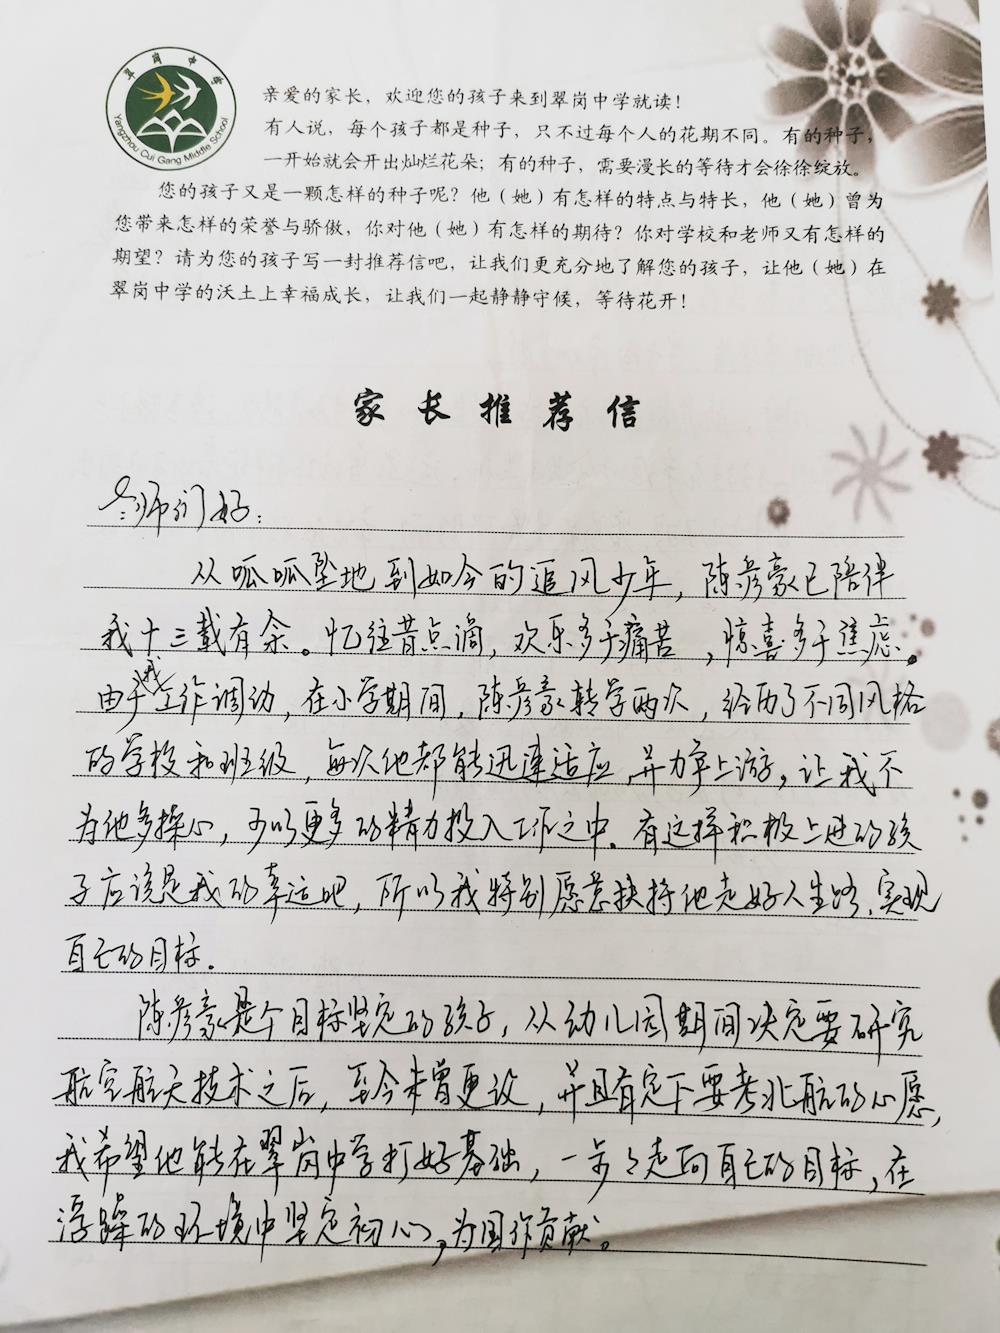 翠岗中学
Yangzhou Cui Gang Middle School
亲爱的家长，欢迎您的孩子来到翠岗中学就读！
有人说，每个孩子都是种子，只不过每个人的花期不同。有的种子，
一开始就会开出灿烂花朵；有的种子，需要漫长的等待才会徐徐绽放。
您的孩子又是一颗怎样的种子呢？他（她）有怎样的特点与特长，他（她）曾为
您带来怎样的荣誉与骄傲，你对他（她）有怎样的期待？你对学校和老师又有怎样的
期望？请为您的孩子写一封推荐信吧，让我们更充分地了解您的孩子，让他（她）在
翠岗中学的沃土上幸福成长，让我们一起静静守候，等待花开！
家长推荐信
老师们好：
从呱呱坠地到如今的追风少年，陈彦豪已陪伴
我十三载有余。忆往昔点滴，欢乐多于痛苦，惊喜多于焦虑。
由于我工作调动，在小学期间，陈彦豪转学两次，经历了不同风格
的学校和班级，每次他都能迅速适应，并力争上游，让我不
为他多操心，可以更多的精力投入工作之中。有这样积极上进的孩
子应该是我的幸运吧，所以我特别愿意扶持他走好人生路，实现
自己的目标。
陈彦豪是个目标坚定的孩子，从幼儿园期间决定要研究
航空航天技术之后，至今未曾更改，并且有定下要考北航的心愿，
我希望他能在翠岗中学打好基础，一步々走向自己的目标，在
浮躁的环境中坚定初心，为国作贡献。